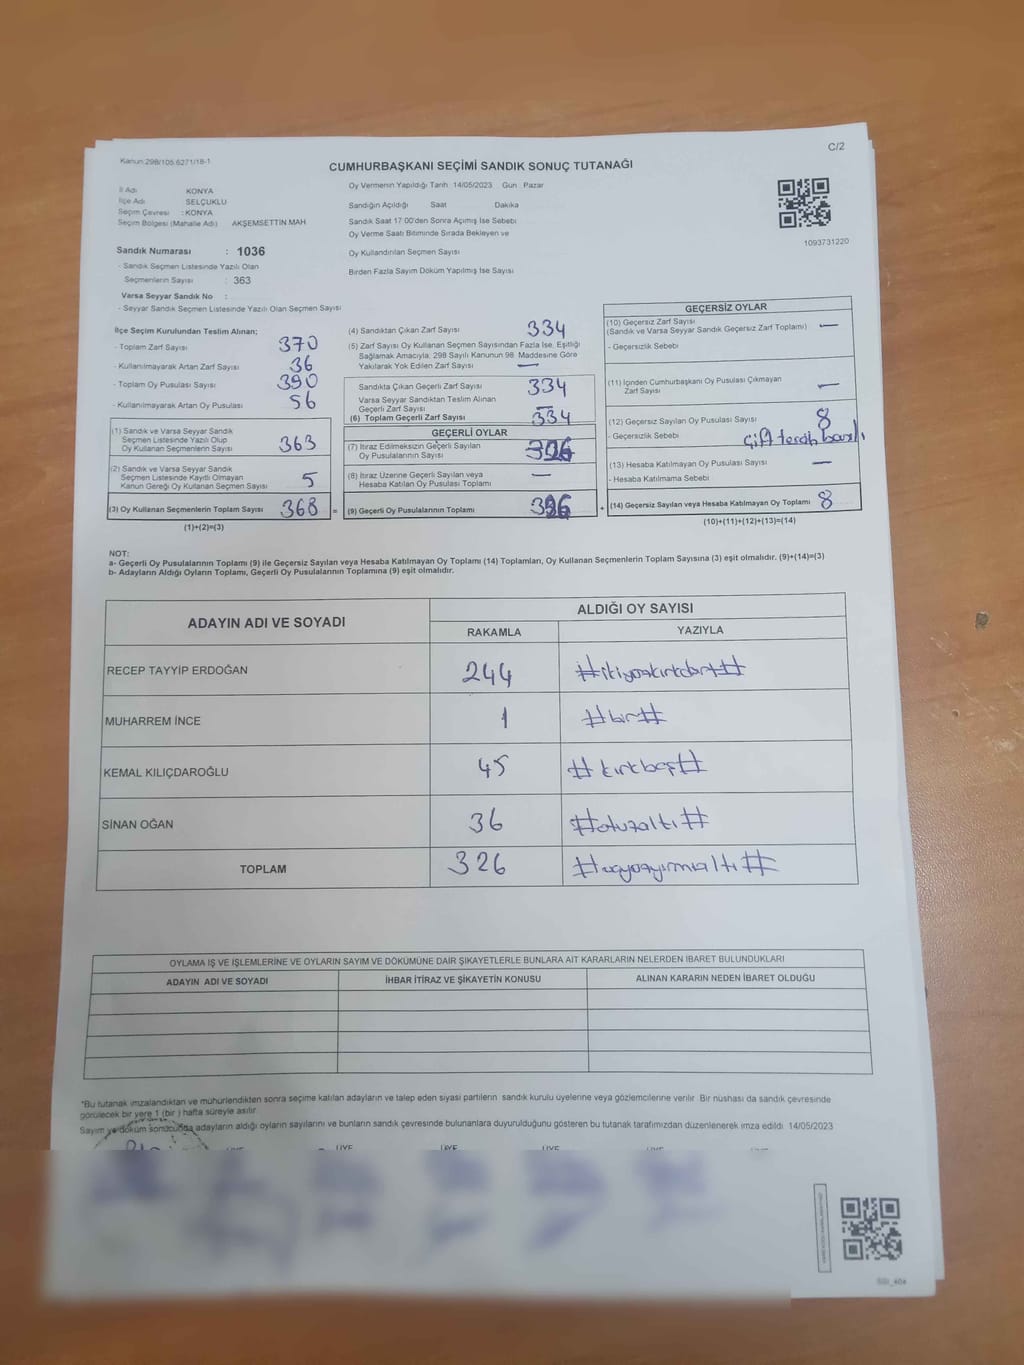 C/2
Kanun:298/105.6271/18-1
CUMHURBAŞKANI SEÇİMİ SANDIK SONUÇ TUTANAĞI
İl Adı KONYA
İlçe Adı SELÇUKLU
Seçim Çevresi : KONYA
Seçim Bölgesi (Mahalle Adı) AKŞEMSETTİN MAH
Sandık Numarası : 1036
- Sandık Seçmen Listesinde Yazılı Olan
Seçmenlerin Sayısı : 363
Varsa Seyyar Sandık No :
- Seyyar Sandık Seçmen Listesinde Yazılı Olan Seçmen Sayısı
Oy Vermenin Yapıldığı Tarih 14/05/2023 Gün Pazar
Sandığın Açıldığı Saat Dakika
Sandık Saat 17:00'den Sonra Açımış İse Sebebi
Oy Verme Saati Bitiminde Sırada Bekleyen ve
Oy Kullandırılan Seçmen Sayısı
Birden Fazla Sayım Döküm Yapılmış İse Sayısı
1093731220
İlçe Seçim Kurulundan Teslim Alınan;
- Toplam Zarf Sayısı 370
- Kullanılmayarak Artan Zarf Sayısı 36
- Toplam Oy Pusulası Sayısı 390
- Kullanılmayarak Artan Oy Pusulası 56
(1) Sandık ve Varsa Seyyar Sandık
Seçmen Listesinde Yazılı Olup
Oy Kullanan Seçmenlerin Sayısı 363
(2) Sandık ve Varsa Seyyar Sandık
Seçmen Listesinde Kayıtlı Olmayan
Kanun Gereği Oy Kullanan Seçmen Sayısı 5
(3) Oy Kullanan Seçmenlerin Toplam Sayısı 368 =
(1)+(2)=(3)
(4) Sandıktan Çıkan Zarf Sayısı 334
(5) Zarf Sayısı Oy Kullanan Seçmen Sayısından Fazla İse, Eşitliği
Sağlamak Amacıyla, 298 Sayılı Kanunun 98. Maddesine Göre
Yakılarak Yok Edilen Zarf Sayısı —
Sandıkta Çıkan Geçerli Zarf Sayısı 334
Varsa Seyyar Sandıktan Teslim Alınan
Geçerli Zarf Sayısı —
(6) Toplam Geçerli Zarf Sayısı 334
GEÇERLİ OYLAR
(7) İtiraz Edilmeksizin Geçerli Sayılan
Oy Pusulalarının Sayısı
(8) İtiraz Üzerine Geçerli Sayılan veya
Hesaba Katılan Oy Pusulası Toplamı —
(9) Geçerli Oy Pusulalarının Toplamı +
GEÇERSİZ OYLAR
(10) Geçersiz Zarf Sayısı
(Sandık ve Varsa Seyyar Sandık Geçersiz Zarf Toplamı) —
- Geçersizlik Sebebi
(11) İçinden Cumhurbaşkanı Oy Pusulası Çıkmayan
Zarf Sayısı —
(12) Geçersiz Sayılan Oy Pusulası Sayısı 8
- Geçersizlik Sebebi Çift tercih
(13) Hesaba Katılmayan Oy Pusulası Sayısı —
- Hesaba Katılmama Sebebi
(14) Geçersiz Sayılan veya Hesaba Katılmayan Oy Toplamı 8
(10)+(11)+(12)+(13)=(14)
NOT:
a- Geçerli Oy Pusulalarının Toplamı (9) ile Geçersiz Sayılan veya Hesaba Katılmayan Oy Toplamı (14) Toplamları, Oy Kullanan Seçmenlerin Toplam Sayısına (3) eşit olmalıdır. (9)+(14)=(3)
b- Adayların Aldığı Oyların Toplamı, Geçerli Oy Pusulalarının Toplamına (9) eşit olmalıdır.
ADAYIN ADI VE SOYADI ALDIĞI OY SAYISI
RAKAMLA YAZIYLA
RECEP TAYYİP ERDOĞAN 244 #ikiyüzkırkdört#
MUHARREM İNCE 1 #bir#
KEMAL KILIÇDAROĞLU 45 #kırkbeş#
SİNAN OĞAN 36 #otuzaltı#
TOPLAM 326 #üçyüzyirmialtı#
OYLAMA İŞ VE İŞLEMLERİNE VE OYLARIN SAYIM VE DÖKÜMÜNE DAİR ŞİKAYETLERLE BUNLARA AİT KARARLARIN NELERDEN İBARET BULUNDUKLARI
ADAYIN ADI VE SOYADI İHBAR İTİRAZ VE ŞİKAYETİN KONUSU ALINAN KARARIN NEDEN İBARET OLDUĞU
*Bu tutanak imzalandıktan ve mühürlendikten sonra seçime katılan adayların ve talep eden siyasi partilerin sandık kurulu üyelerine veya gözlemcilerine verilir. Bir nüshası da sandık çevresinde
görülecek bir yere 1 (bir ) hafta süreyle asılır.
Sayım ve döküm sonucunda adayların aldığı oyların sayılarını ve bunların sandık çevresinde bulunanlara duyurulduğunu gösteren bu tutanak tarafımızdan düzenlenerek imza edildi. 14/05/2023
ÜYE ÜYE ÜYE ÜYE ÜYE